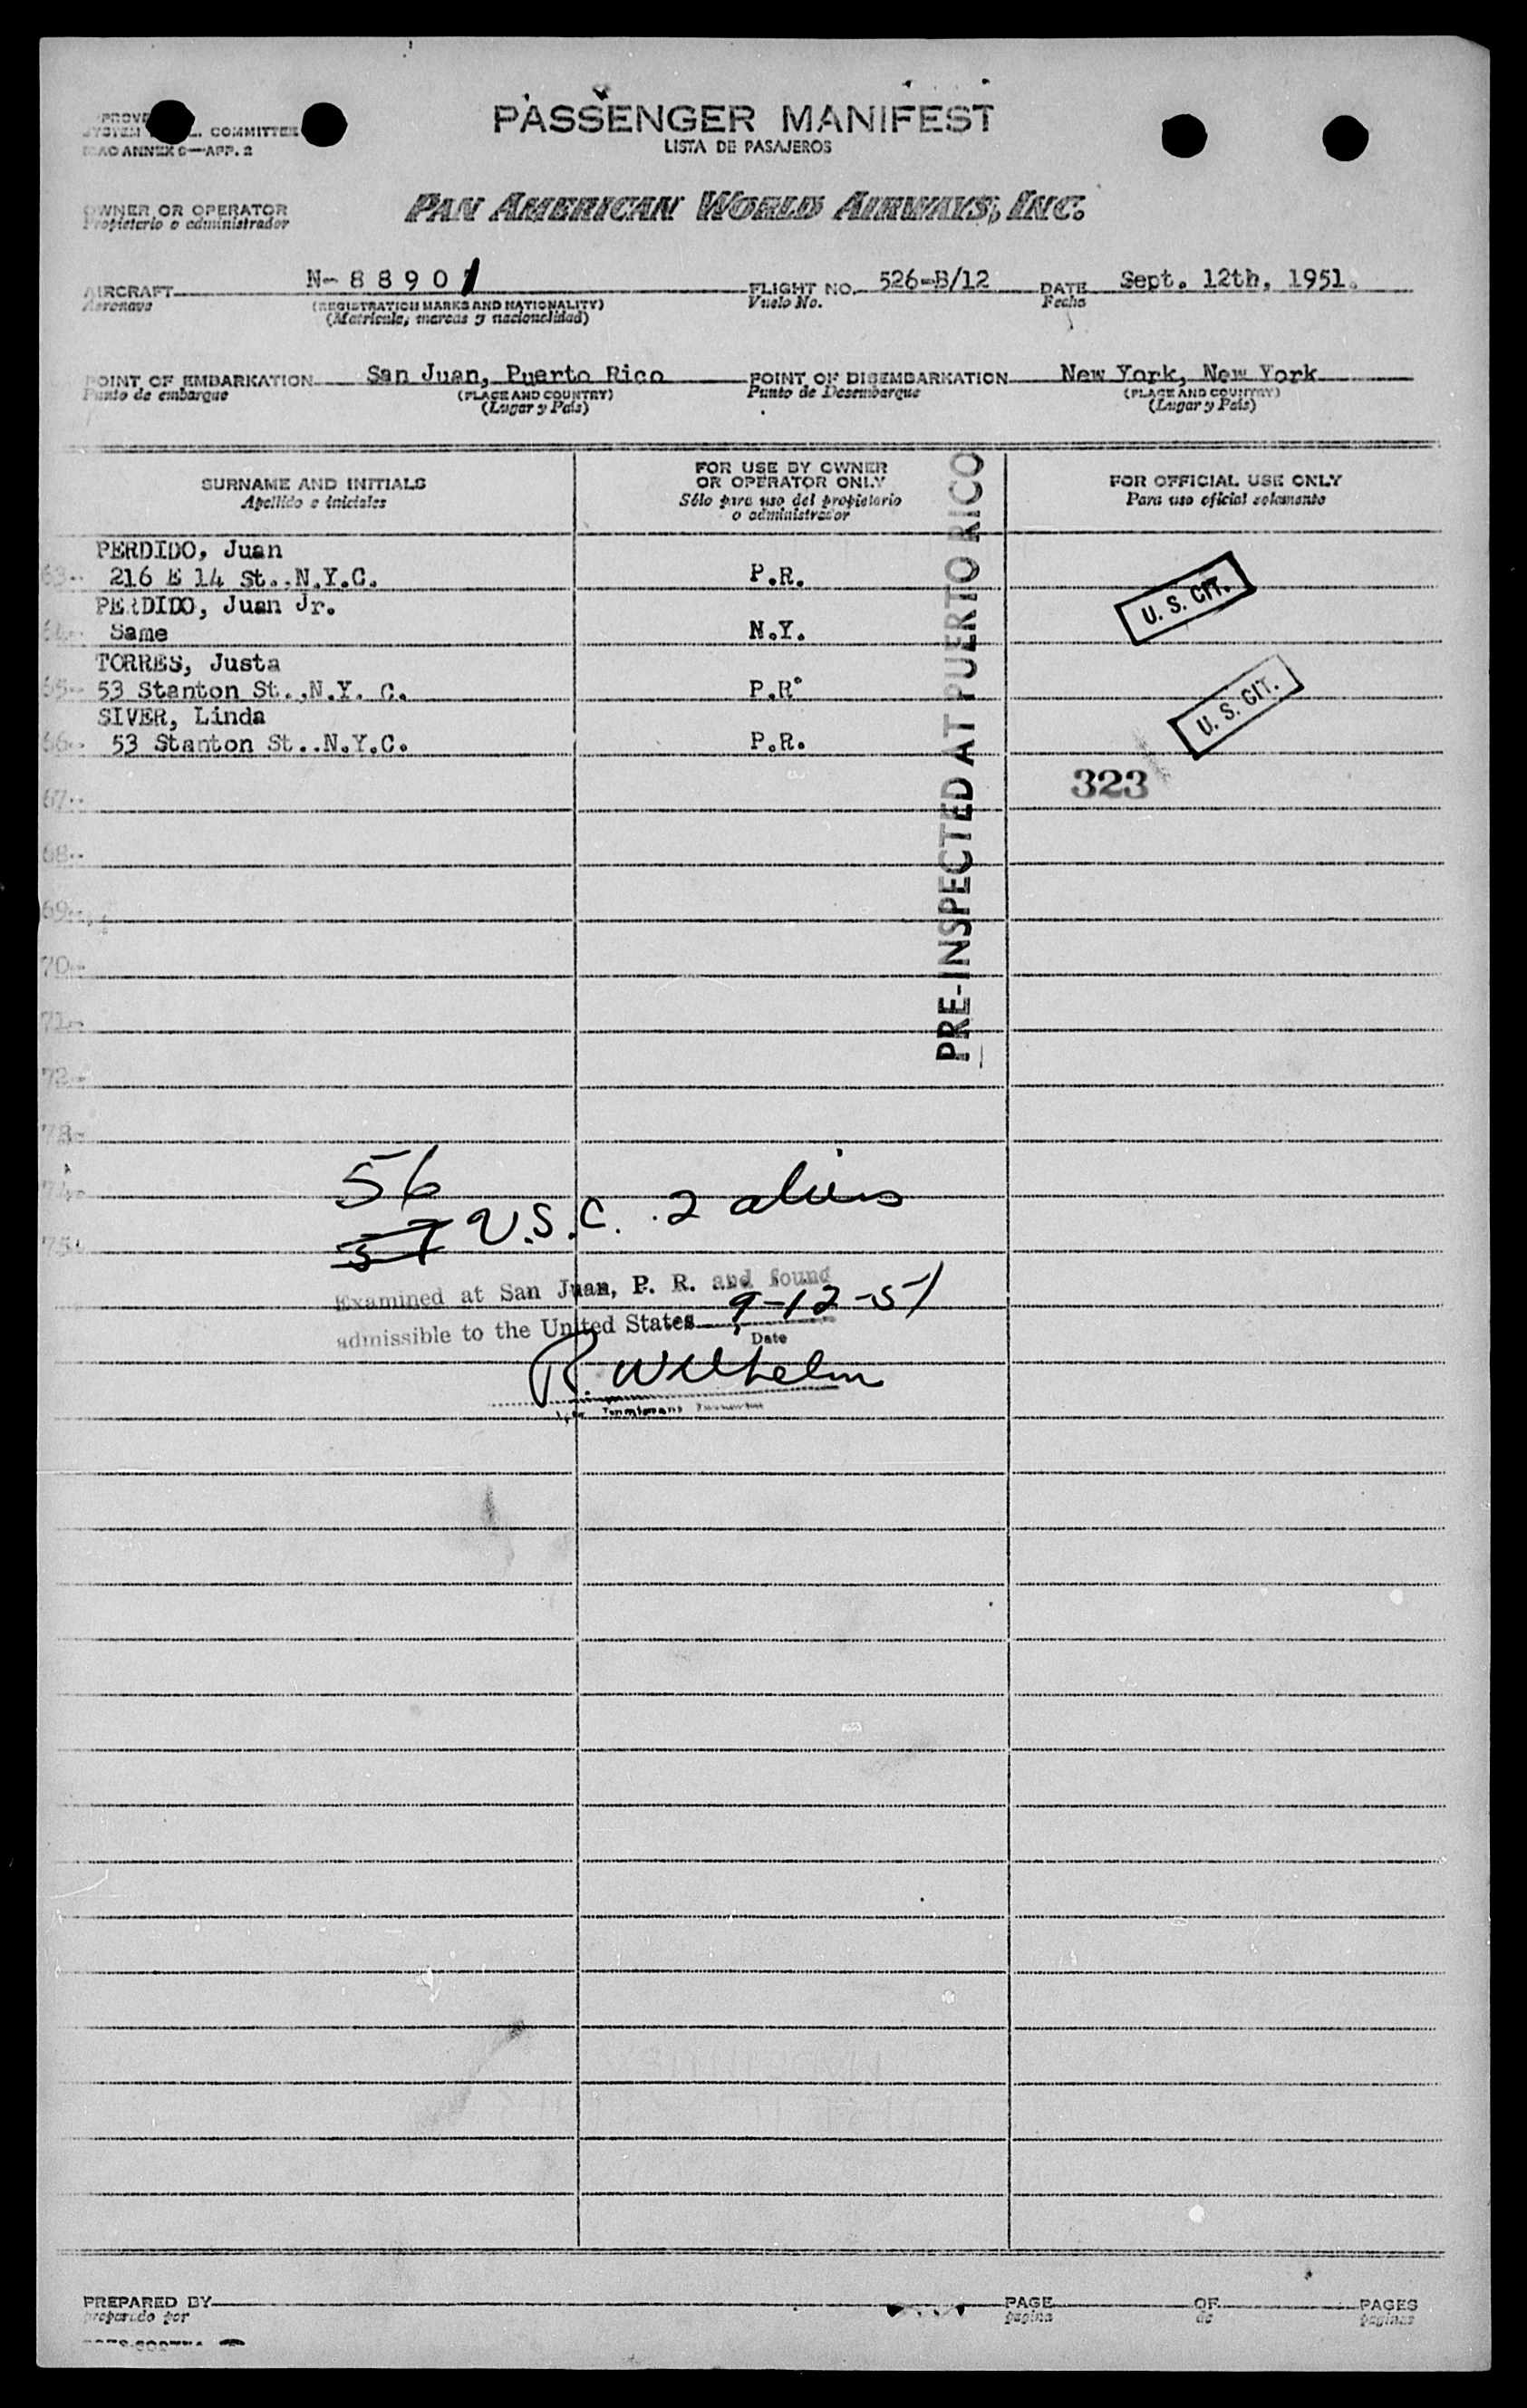 PASSENGER MANIFEST
LISTA DE PASAJEROS
COMMITTEE
ANNEX 9—APP. 2
OWNER OR OPERATOR
Propietario o administrador
PAN AMERICAN WORLD AIRWAYS, INC.
AIRCRAFT N- 8 8 9 0 1 FLIGHT NO. 526-B/12 DATE Sept. 12th, 1951.
Aeronave (REGISTRATION MARKS AND NATIONALITY) Vuelo No. Fecha
(Matricula, marcas y nacionalidad)
POINT OF EMBARKATION San Juan, Puerto Rico POINT OF DISEMBARKATION New York, New York
Punto de embarque (PLACE AND COUNTRY) Punto de Desembarque (PLACE AND COUNTRY)
(Lugar y País) (Lugar y País)
SURNAME AND INITIALS FOR USE BY OWNER OR OPERATOR ONLY FOR OFFICIAL USE ONLY
Apellido e iniciales Sólo para uso del propietario o administrador Para uso oficial solamente
PRE-INSPECTED AT PUERTO RICO
PERDIDO, Juan
63-- 216 E 14 St..N.Y.C. P.R. U. S. CIT.
PERDIDO, Juan Jr.
64-- Same N.Y.
TORRES, Justa
65-- 53 Stanton St.,N.Y. C. P.R. U. S. CIT.
SIVER, Linda
66-- 53 Stanton St..N.Y.C. P.R.
67-- 323
68--
69--
70-
71-
72-
73-
74-
56
75- 57 U.S.C. 2 aliens
Examined at San Juan, P. R. and found
admissible to the United States 9-12-51
Date
R. Wilhelm
PREPARED BY PAGE OF PAGES
preparado por pagina de paginas